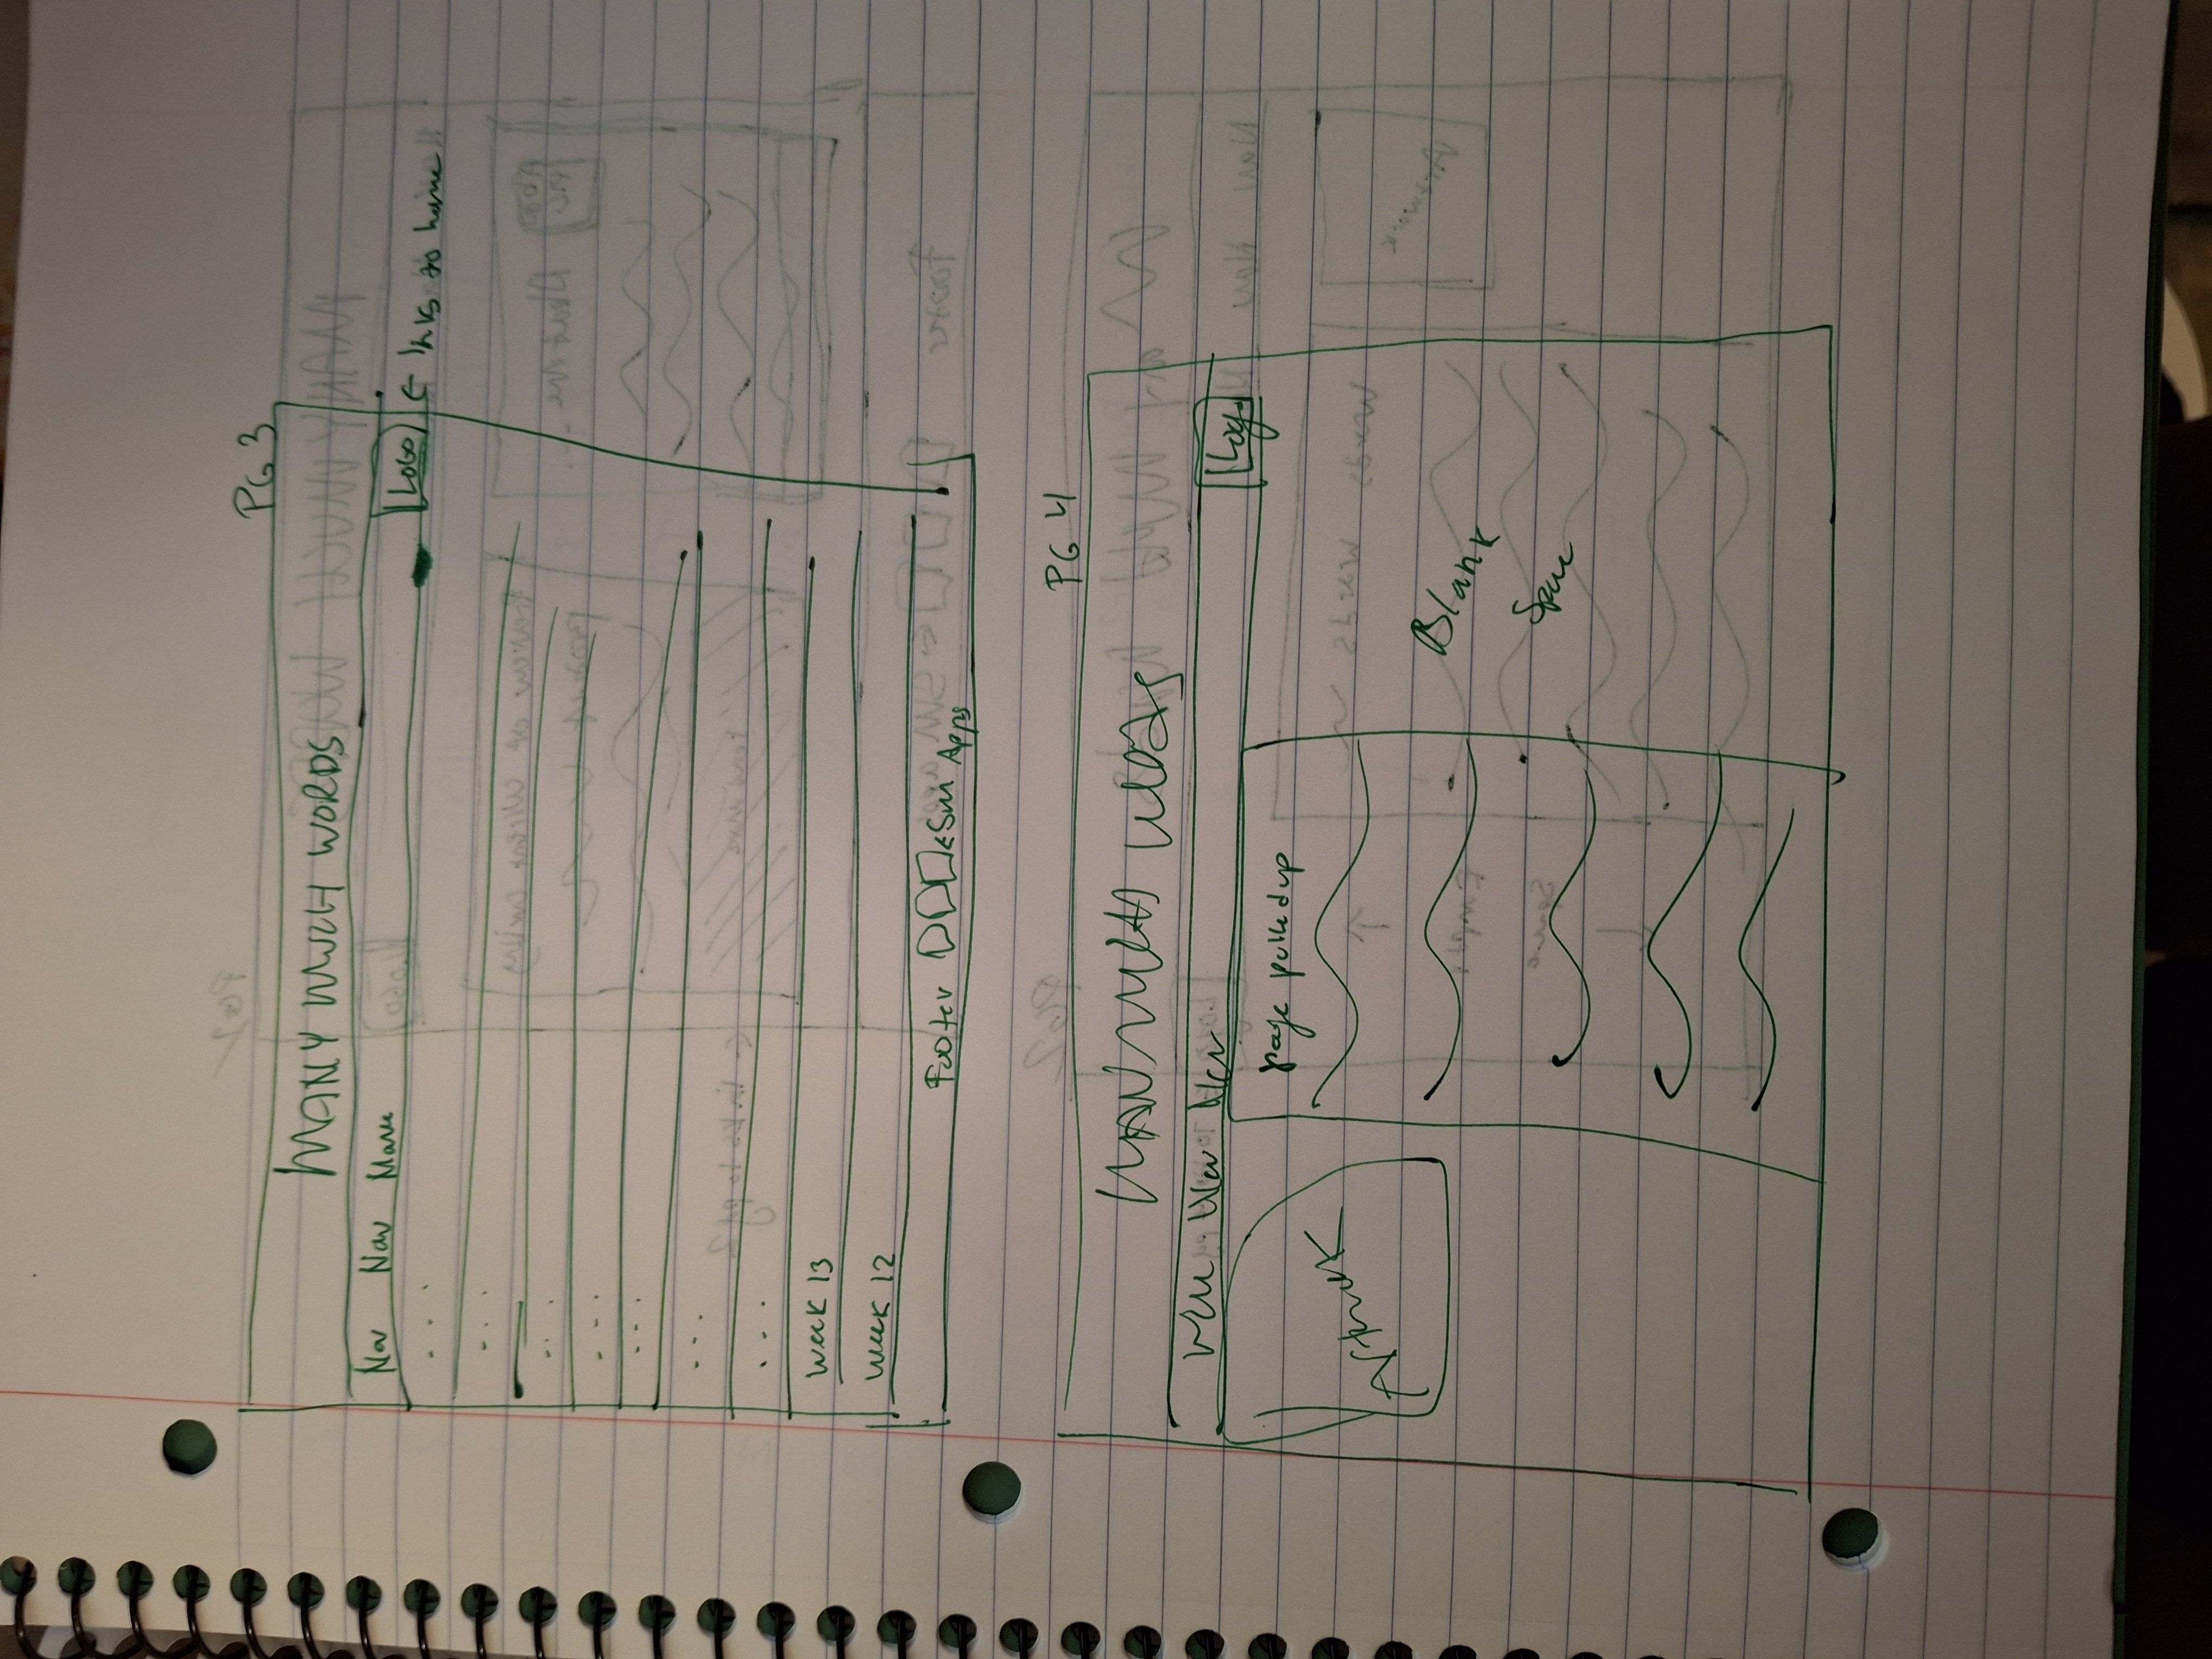 PG 3
MANY MUCH WORDS
Nav Nav
LOGO ← links to home
. . .
. . .
. . .
. . .
. . .
. . .
. . .
Week 13
Week 12
Footer ← SM Apps
PG 4
Nav Nav
Logo
page pulled up
Artwork
Blank
Space